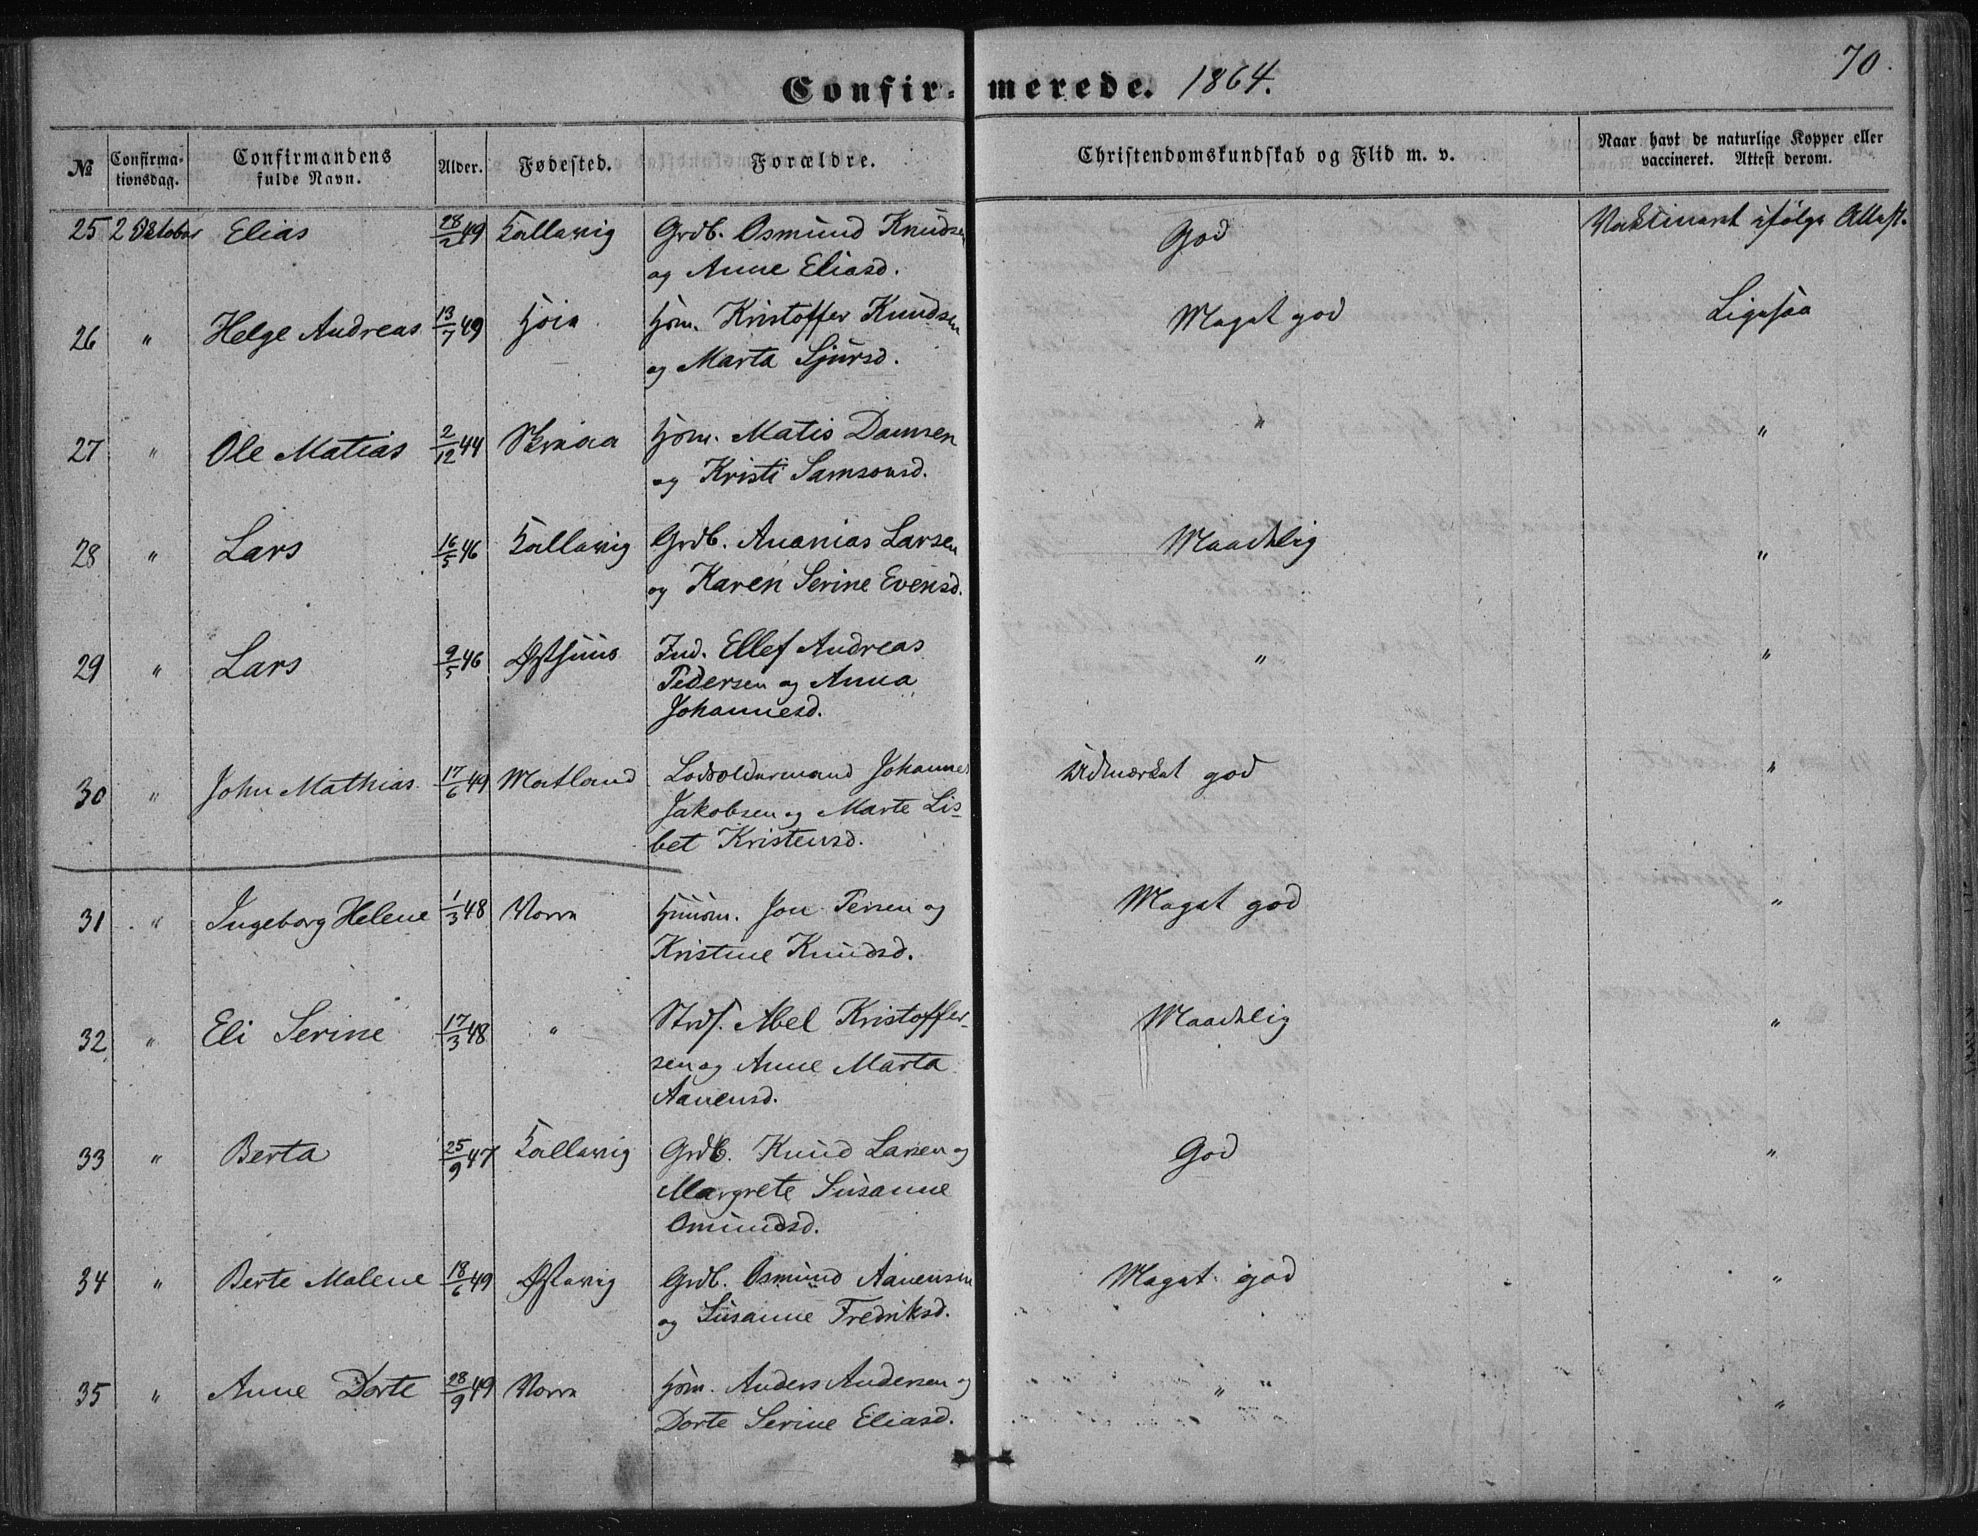 70.
Confir- merede. 1864.
№ Confirma-tionsdag. Confirmandens fulde Navn. Alder. Fødested. Forældre. Christendomskundskab og Flid m. v. Naar havt de naturlige Kopper eller vaccineret. Attest derom.
25 2 Oktober Elias 28/2 49 Kallavig Grdb. Osmund Knudsen God Vaktineret ifølge Attest.
og Anne Eliasd.
26 " Helge Andreas 13/7 49 Höie Hsm. Kristoffer Knudsen Meget god Ligesaa
og Marta Sjursd.
27 " Ole Matias 2/12 44 Hsm. Matis Damsen " "
og Kristi Samsonsd.
28 " Lars 16/5 46 Kallavig Grdb. Ananias Larsen Maadelig "
og Karen Serine Evensd.
29 " Lars 9/5 46 Østhuus Ind. Ellef Andreas " "
Pedersen og Anna
Johannesd.
30 " John Mathias 17/6 49 Matland Lodsoldermand Johannes Udmærket god "
Jakobsen og Marte Lis-
bet Kristensd.
31 " Ingeborg Helene 1/3 48 Vorre Huusm. Jon Persen og Meget god "
Kristine Knudsd.
32 " Eli Serine 17/3 48 " Strds. Abel Kristoffer- Maadelig "
sen og Anne Marta
Aanensd.
33 " Berta 25/9 47 Kallavig Grdb. Knud Larsen og God "
Margrete Susanne
Omundsd.
34 " Berte Malene 18/6 49 Østavig Grdb. Osmund Aanensen Meget god "
og Susanne Fredriksd.
35 " Anne Dorte 28/9 49 Vorre Hsm. Anders Andersen og " " "
Dorte Serine Eliasd.